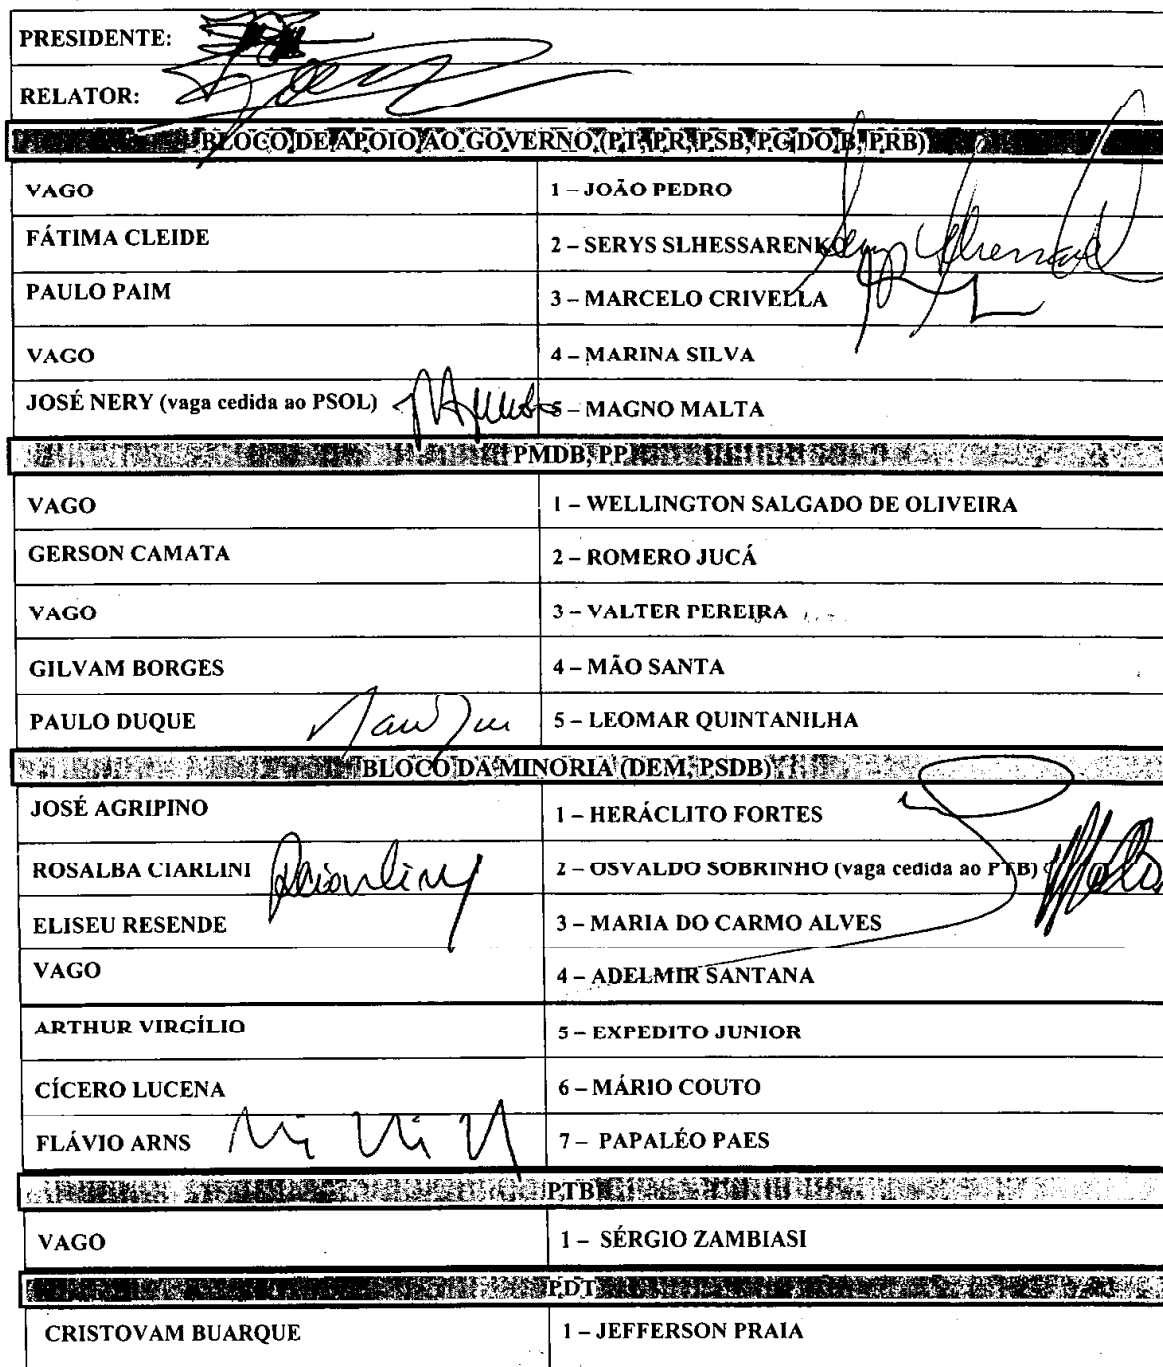 PRESIDENTE:
RELATOR:
BLOCO DE APOIO AO GOVERNO (PT, PR, PSB, PC DO B, PRB)
VAGO 1 – JOÃO PEDRO
FÁTIMA CLEIDE 2 – SERYS SLHESSARENKO
PAULO PAIM 3 – MARCELO CRIVELLA
VAGO 4 – MARINA SILVA
JOSÉ NERY (vaga cedida ao PSOL) 5 – MAGNO MALTA
PMDB, PP
VAGO 1 – WELLINGTON SALGADO DE OLIVEIRA
GERSON CAMATA 2 – ROMERO JUCÁ
VAGO 3 – VALTER PEREIRA
GILVAM BORGES 4 – MÃO SANTA
PAULO DUQUE 5 – LEOMAR QUINTANILHA
BLOCO DA MINORIA (DEM, PSDB)
JOSÉ AGRIPINO 1 – HERÁCLITO FORTES
ROSALBA CIARLINI 2 – OSVALDO SOBRINHO (vaga cedida ao PTB)
ELISEU RESENDE 3 – MARIA DO CARMO ALVES
VAGO 4 – ADELMIR SANTANA
ARTHUR VIRGÍLIO 5 – EXPEDITO JUNIOR
CÍCERO LUCENA 6 – MÁRIO COUTO
FLÁVIO ARNS 7 – PAPALÉO PAES
PTB
VAGO 1 – SÉRGIO ZAMBIASI
PDT
CRISTOVAM BUARQUE 1 – JEFFERSON PRAIA